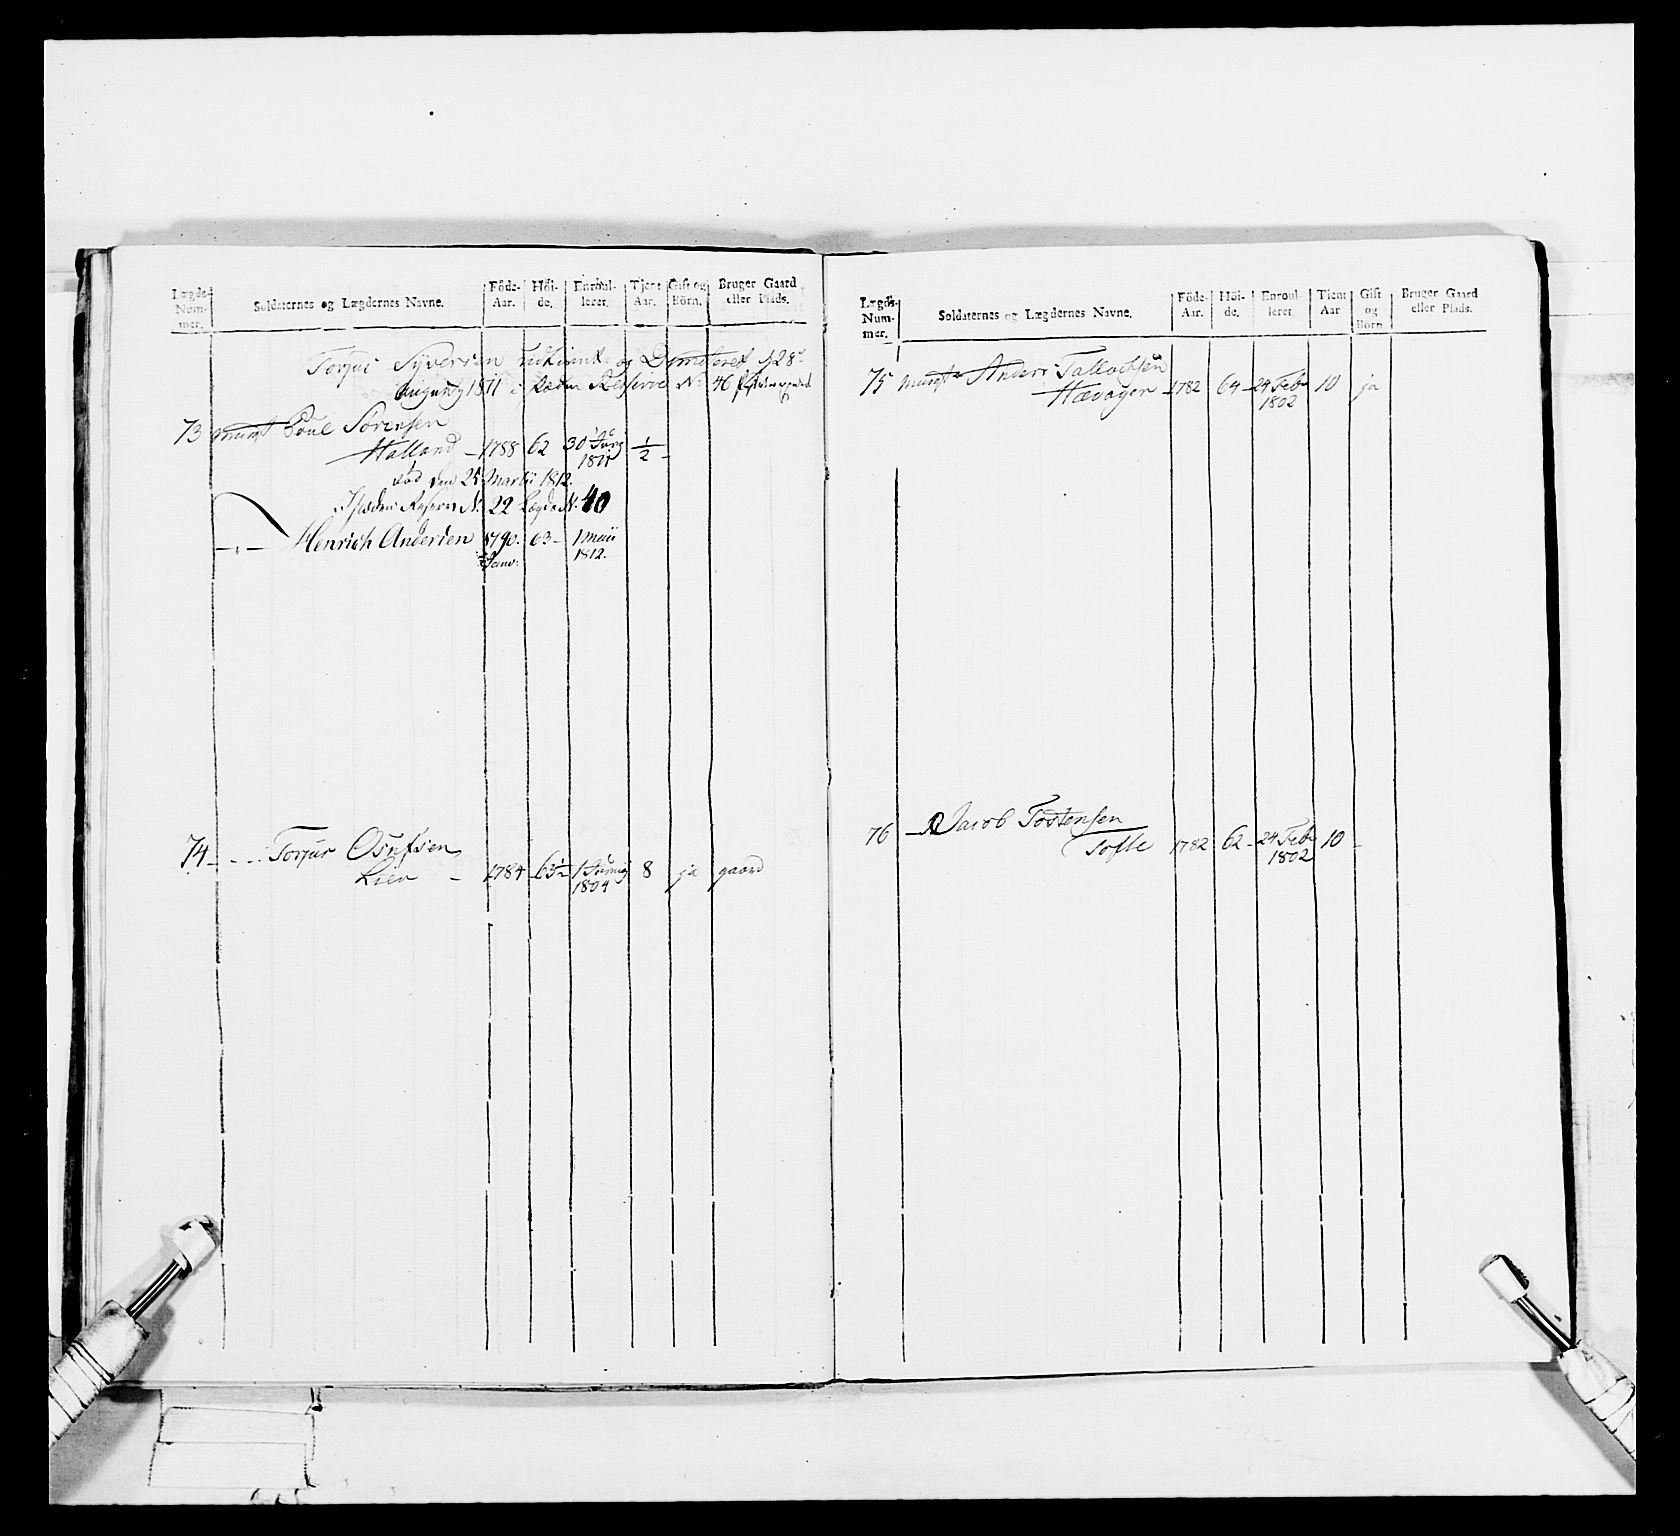 Lægds-Num-mer. Soldaternes og Lægdernes Navne. Föde-Aar. Höi-de. Enroul-leret. Tjent Aar. Gift og Börn. Bruger Gaard eller Plads.
Torjus Syversen og Dimiteret d 28
August 1811 Reserve No 46
73 Poul Sörensen
Halland 1788 62 30 1811 1/2
död den 25 Martii 1812.
Isteden Reserve No 22 Lægds No. 40
Henrich Andersen 1790. 63 1 Maii
Janv: 1812.
74 Torjus Osufsen
Lien 1784 63 1/2 1 8 ja gaard
1804
Lægds-Num-mer. Soldaternes og Lægdernes Navne. Föde-Aar. Höi-de. Enroul-leret Tient Aar Gift og Börn Bruger Gaard eller Plads.
75 Anders Tallevsen
Hævager 1782 64 24 Feb 10 ja
1802
76 Jacob Tostensen
Tofte 1782 62 24 Feb 10
1802